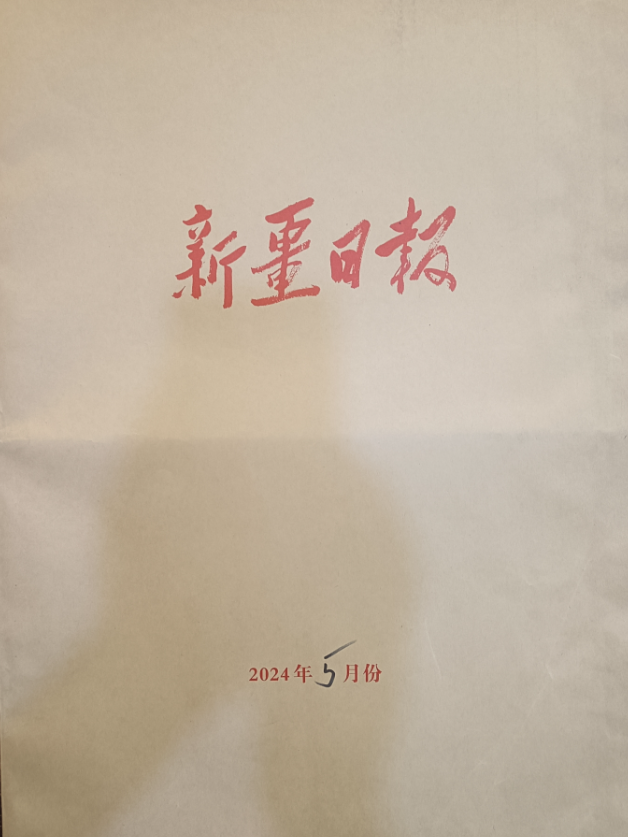 新疆日报
2024年5月份